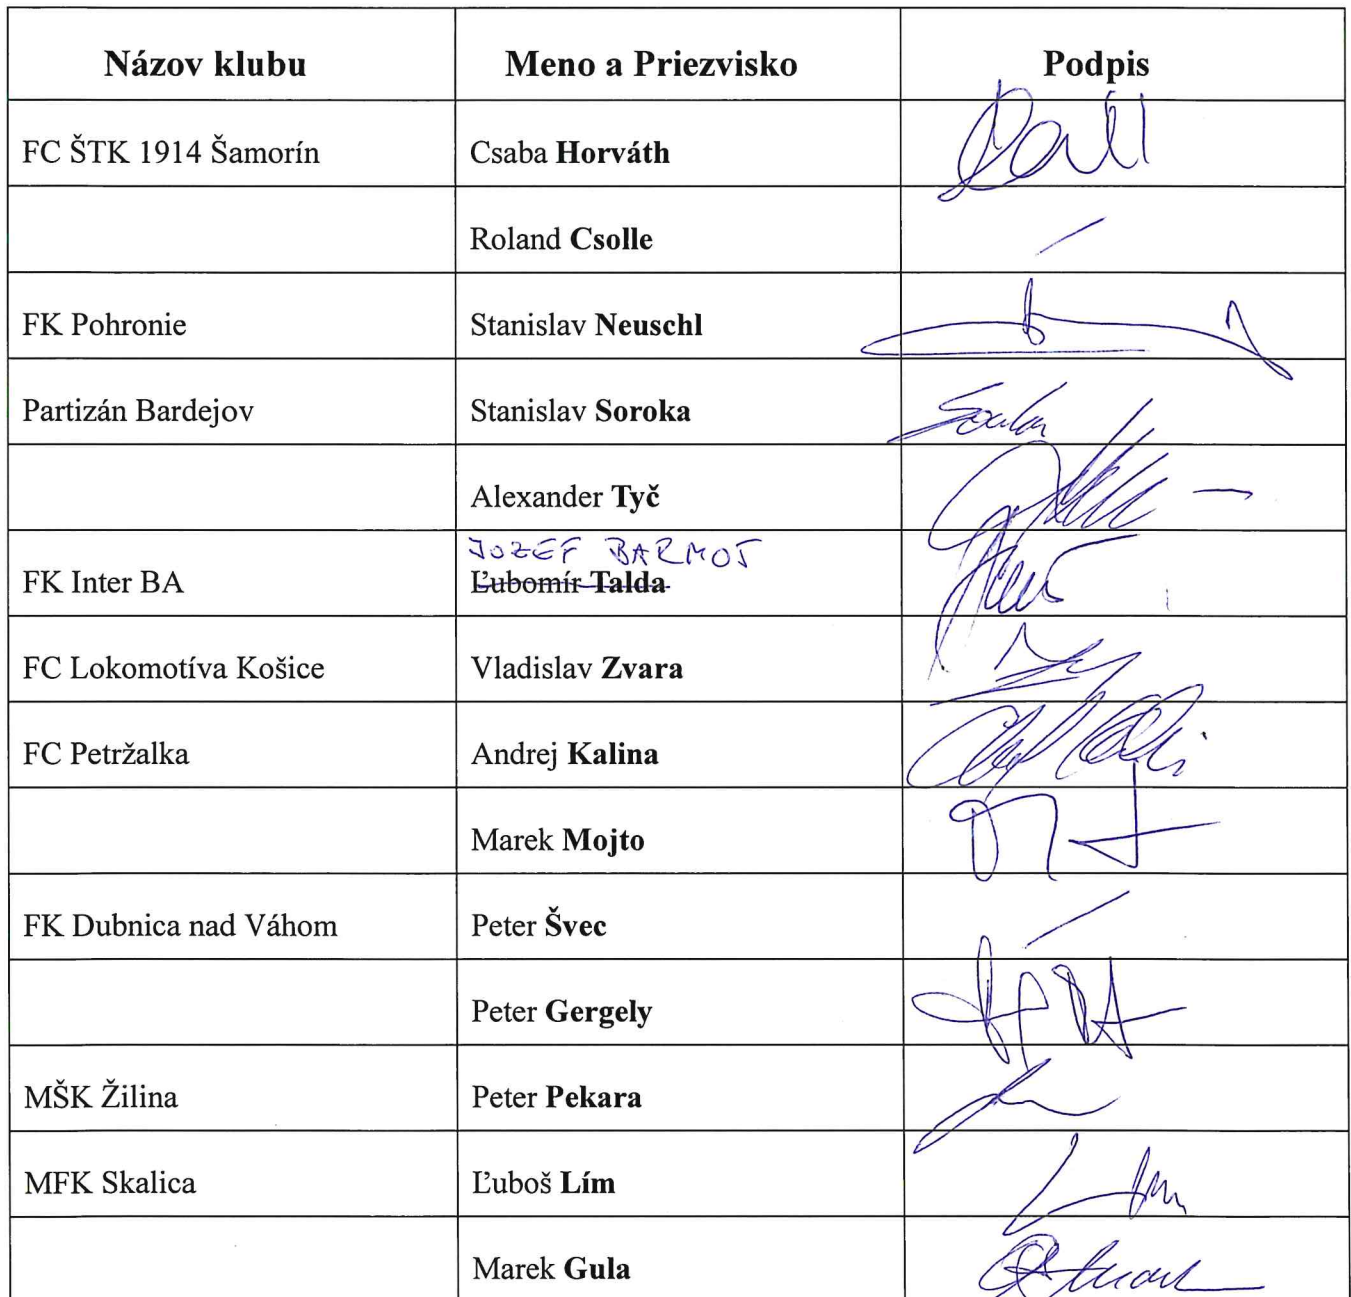 Názov klubu Meno a Priezvisko Podpis
FC ŠTK 1914 Šamorín Csaba Horváth
Roland Csolle
FK Pohronie Stanislav Neuschl
Partizán Bardejov Stanislav Soroka
Alexander Tyč
JOZEF BARMOŠ
FK Inter BA Ľubomír Talda
FC Lokomotíva Košice Vladislav Zvara
FC Petržalka Andrej Kalina
Marek Mojto
FK Dubnica nad Váhom Peter Švec
Peter Gergely
MŠK Žilina Peter Pekara
MFK Skalica Ľuboš Lím
Marek Gula